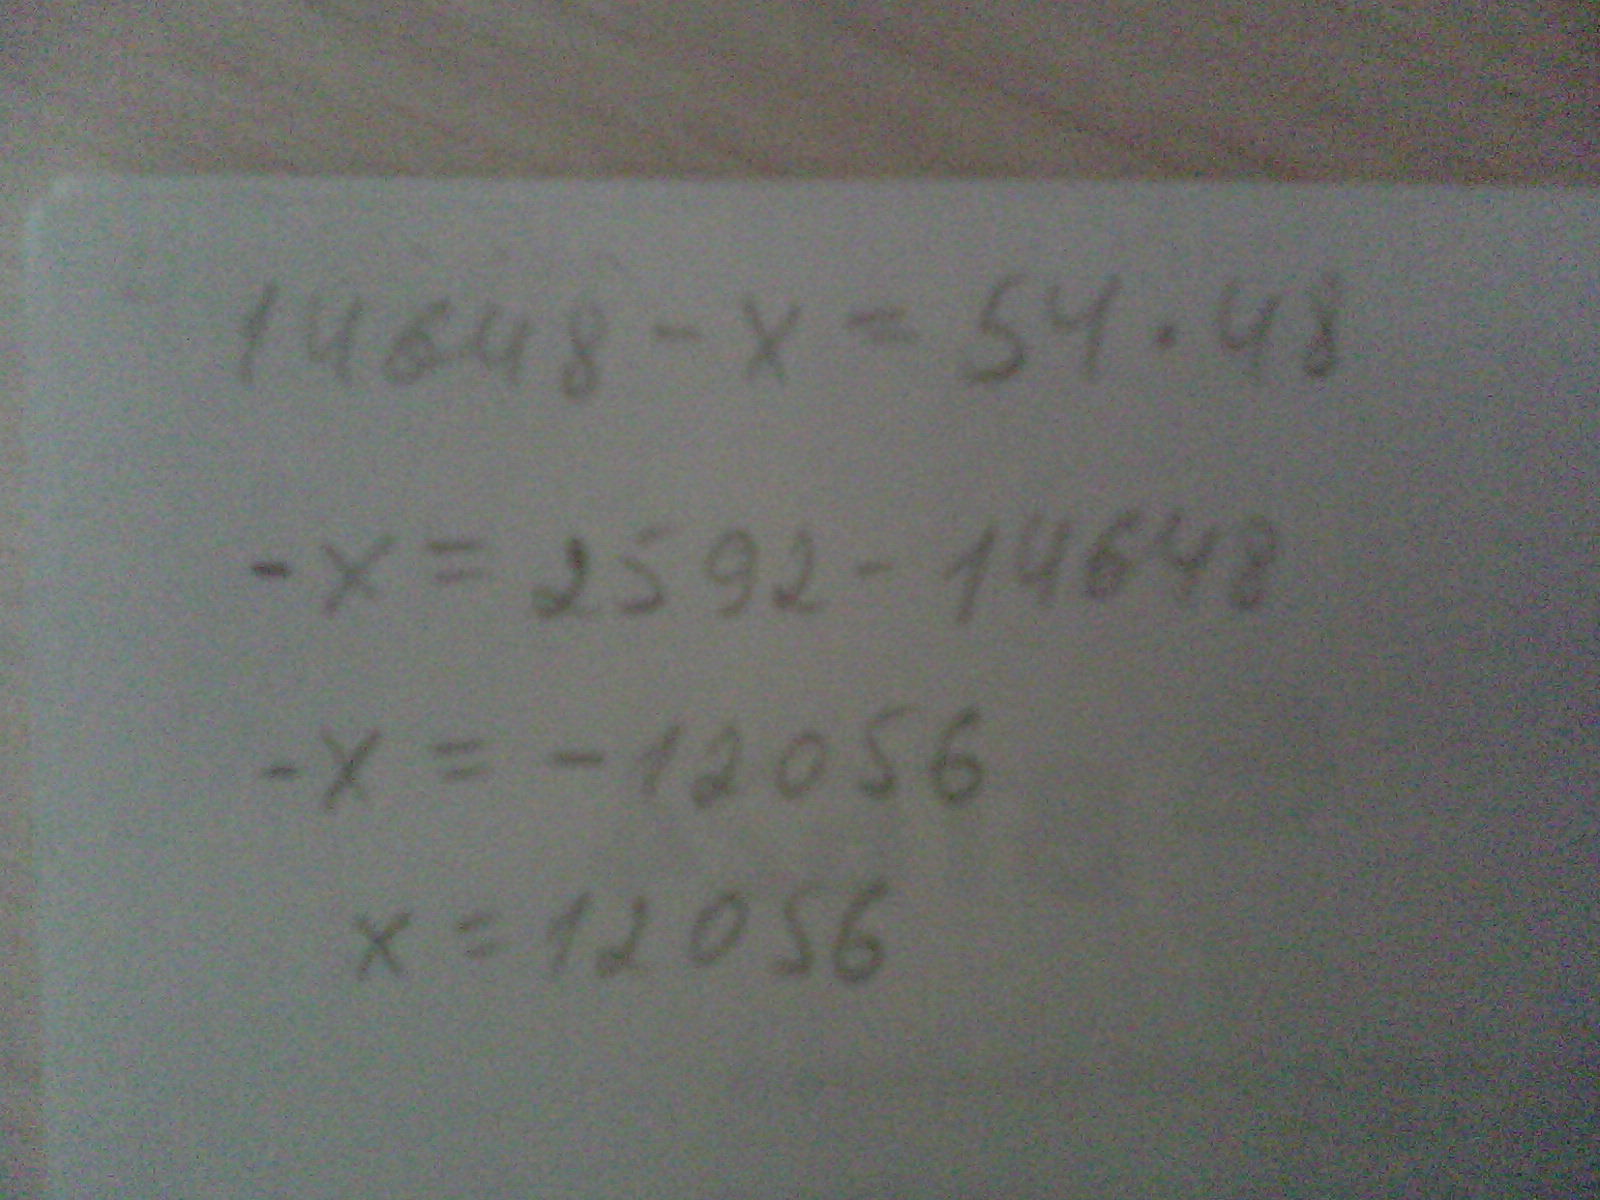 14648 - x = 54 · 48
-x = 2592 - 14648
-x = -12056
x = 12056